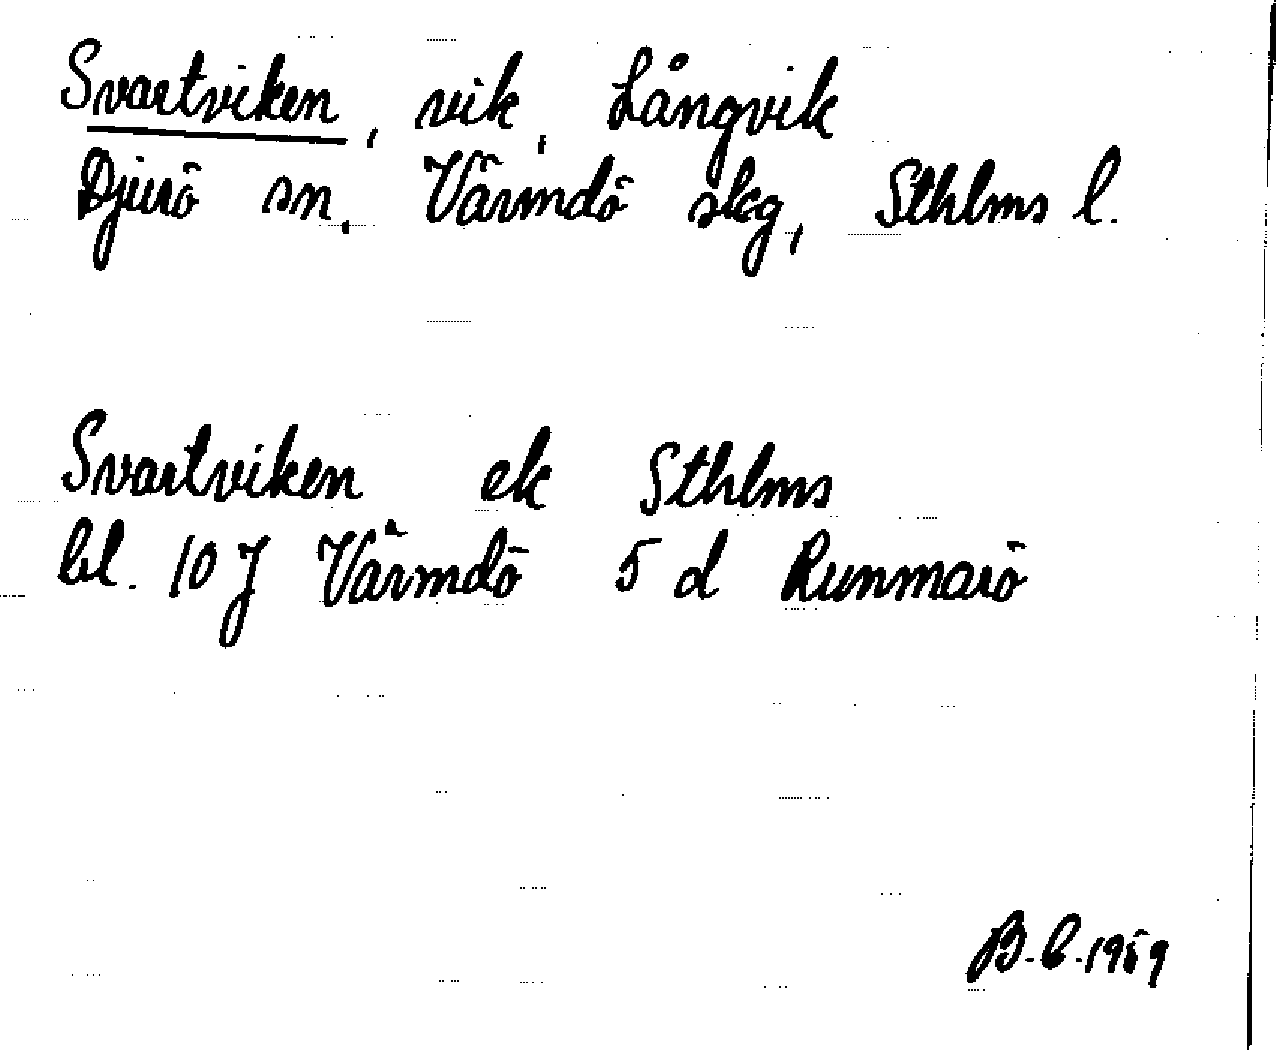 Svartviken, vik, Långvik
Djurö sn. Värmdö skg, Sthlms l.
Svartviken ek Sthlms
bl. 10 J Värmdö 5 d Runmarö
B.C. 1959